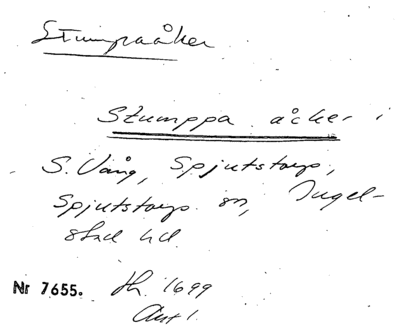 Stumpaåker
Stumppa åcker i
S. Vång, Spjutstorp,
Spjutstorps sn, Ingel-
stad hd.
Nr 7655. Jb. 1699
Ant 1.